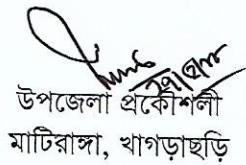 উপজেলা প্রকৌশলী
মাটিরাঙ্গা, খাগড়াছড়ি